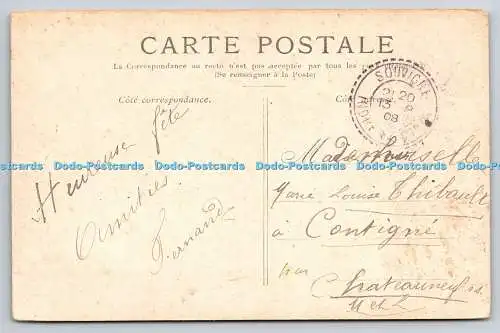 CARTE POSTALE
La Correspondance au recto n'est pas acceptée par tous les
(Se renseigner à la Poste)
Côté correspondance.
SOUVIGNÉ
21 20
15
08
Heureuse fête
Amitiés
Fernand
Mademoiselle
Marie Louise Thibault
à Contigné
par
Chateauneuf s.s.
M et L
Dodo-Postcards Dodo-Postcards Dodo-Postcards Dodo-Postcards Dodo-Postcards Dodo-Postcards